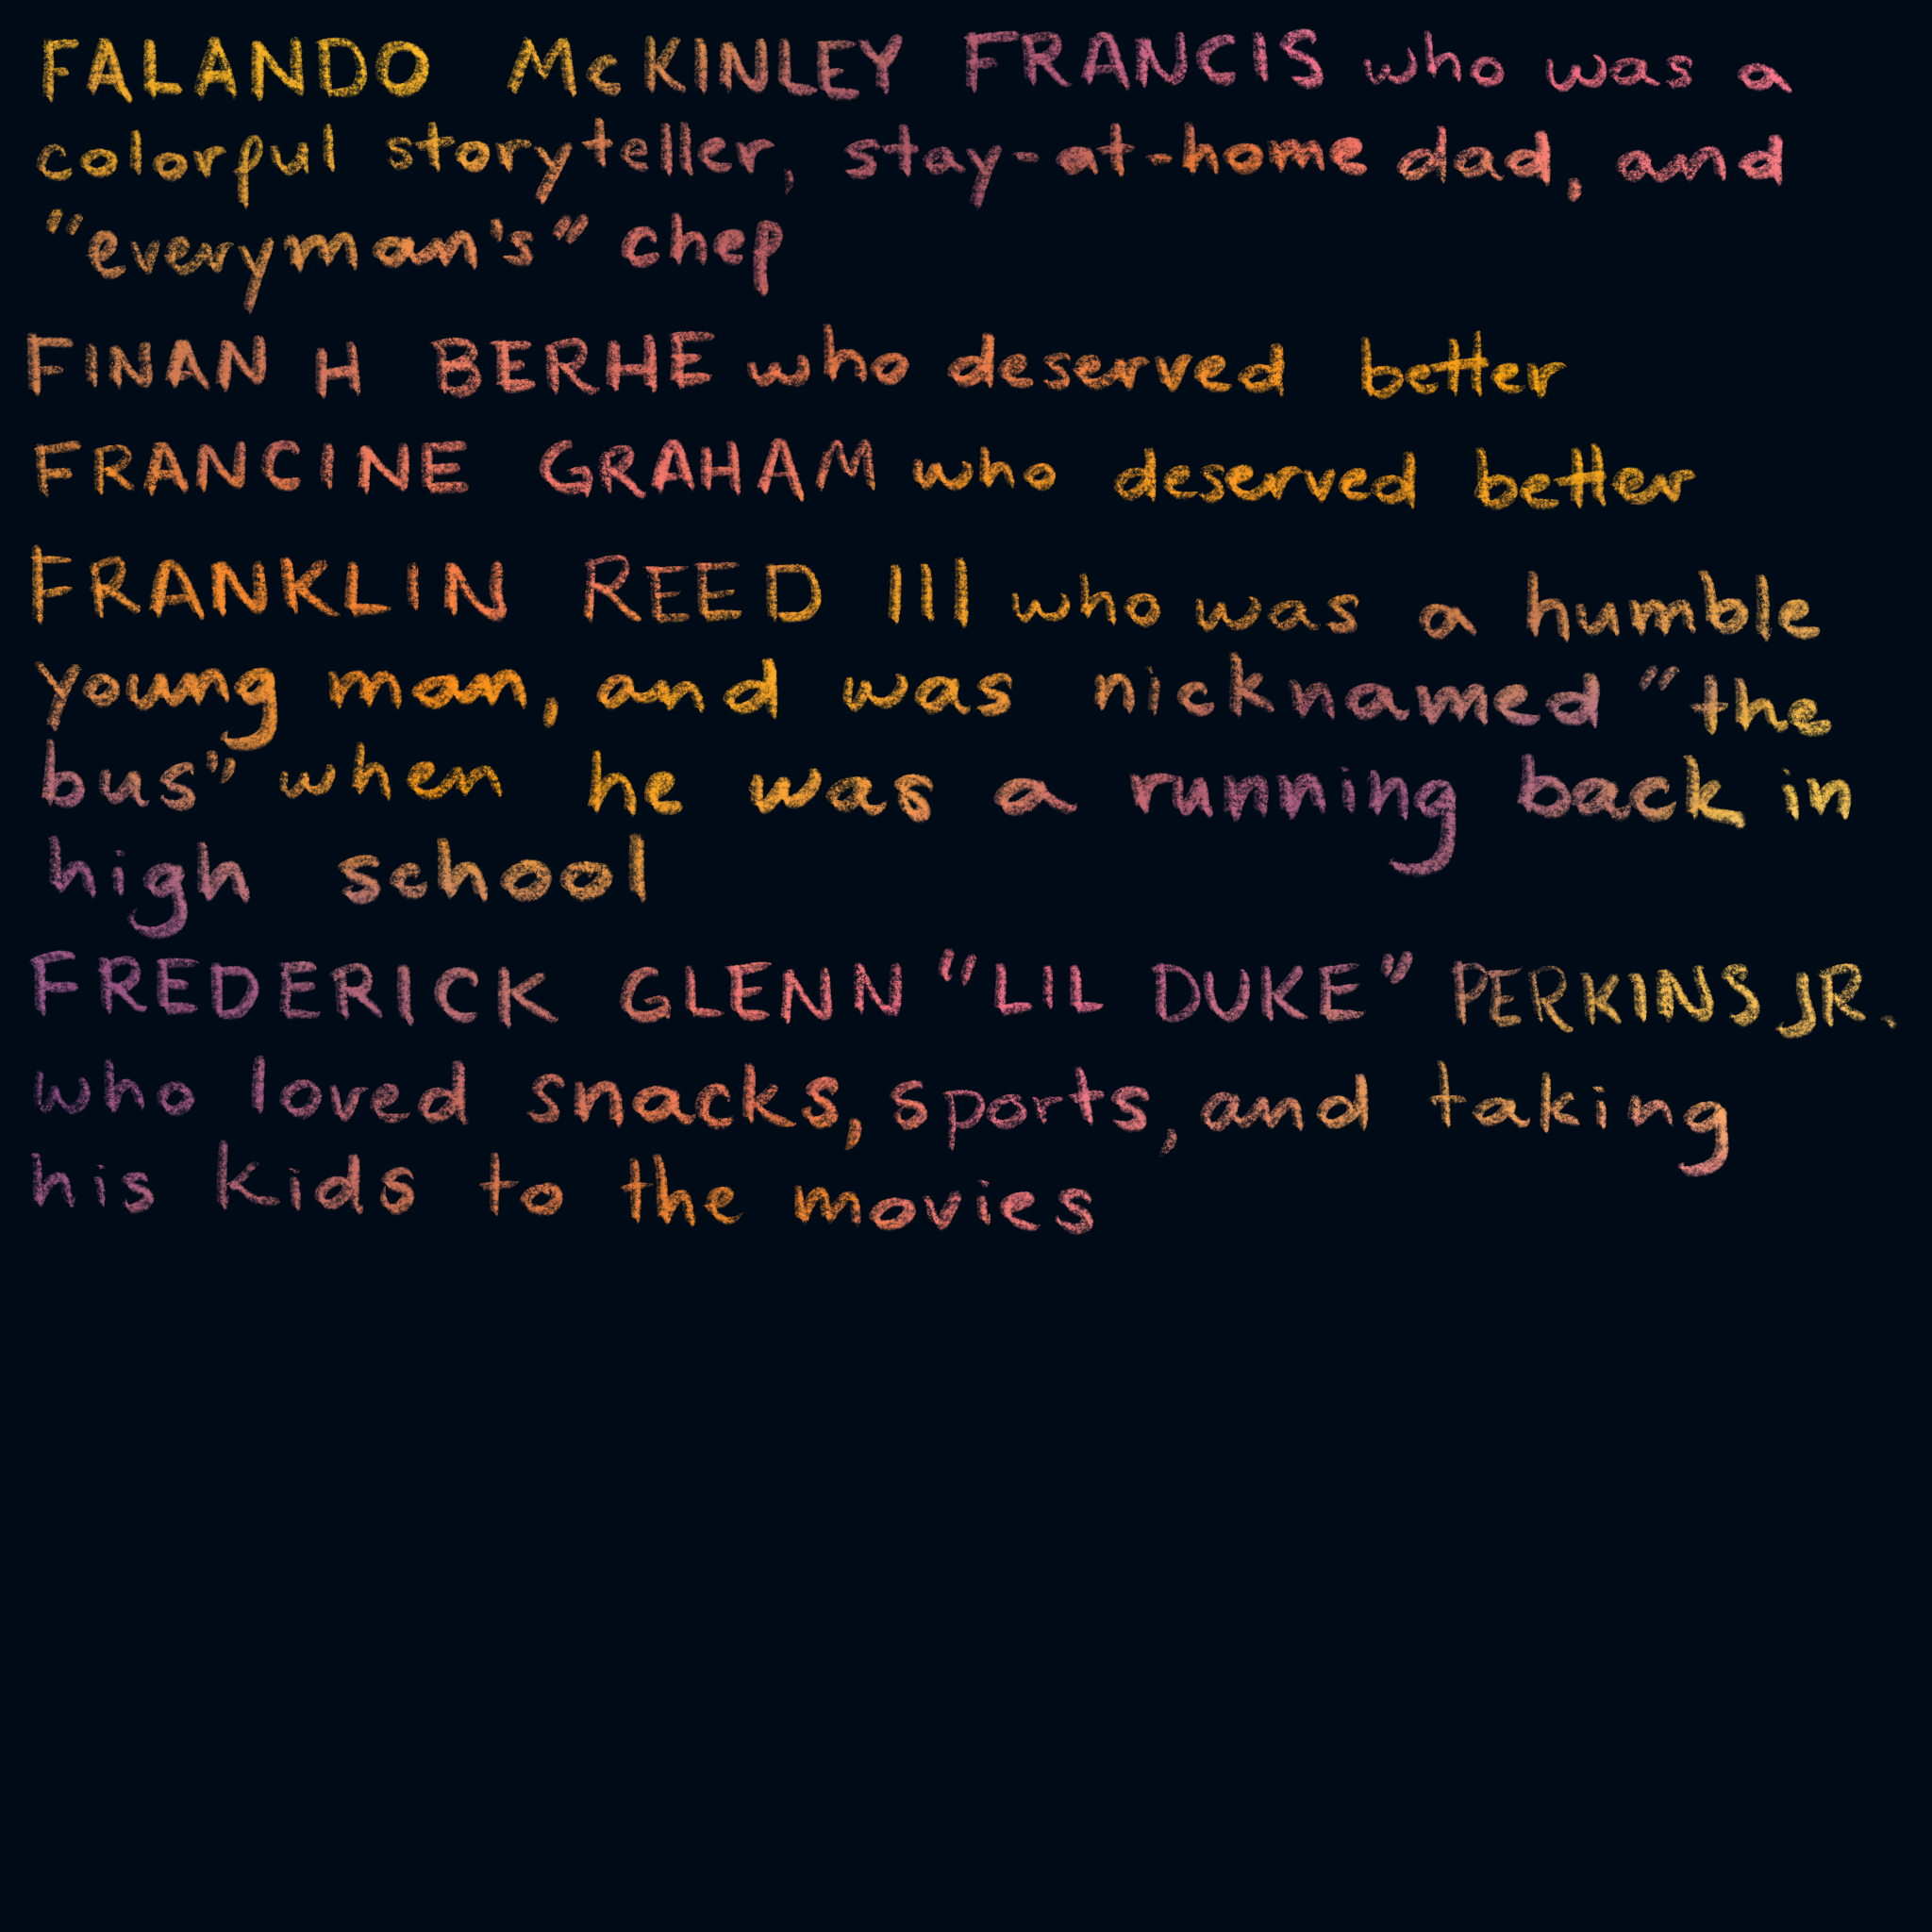 FALANDO McKINLEY FRANCIS who was a
colorful storyteller, stay-at-home dad, and
"everyman's" chef
FINAN H BERHE who deserved better
FRANCINE GRAHAM who deserved better
FRANKLIN REED III who was a humble
young man, and was nicknamed "the
bus" when he was a running back in
high school
FREDERICK GLENN "LIL DUKE" PERKINS JR.
who loved snacks, sports, and taking
his kids to the movies